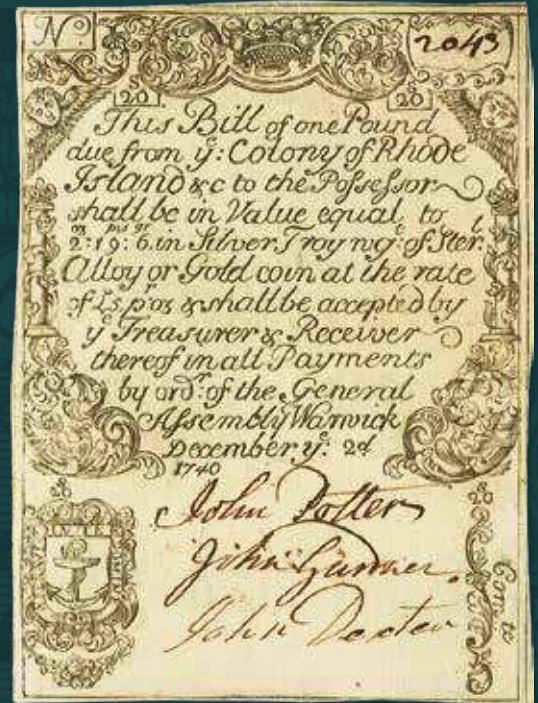 No. 2043
S 20 S 20
This Bill of one Pound
due from yͤ: Colony of Rhode
Island &c to the Possessor
shall be in Value equal to
oz pwt gr
2:19:6. in Silver Troy wgᵗ: of Ster.ˡ
Alloy or Gold coin at the rate
of £5 pʳ oz & shall be accepted by
yͤ Treasurer & Receiver
thereof in all Payments
by ordʳ: of the General
Assembly Warwick
December yͤ: 2d
1740
John Potter
John Dexter